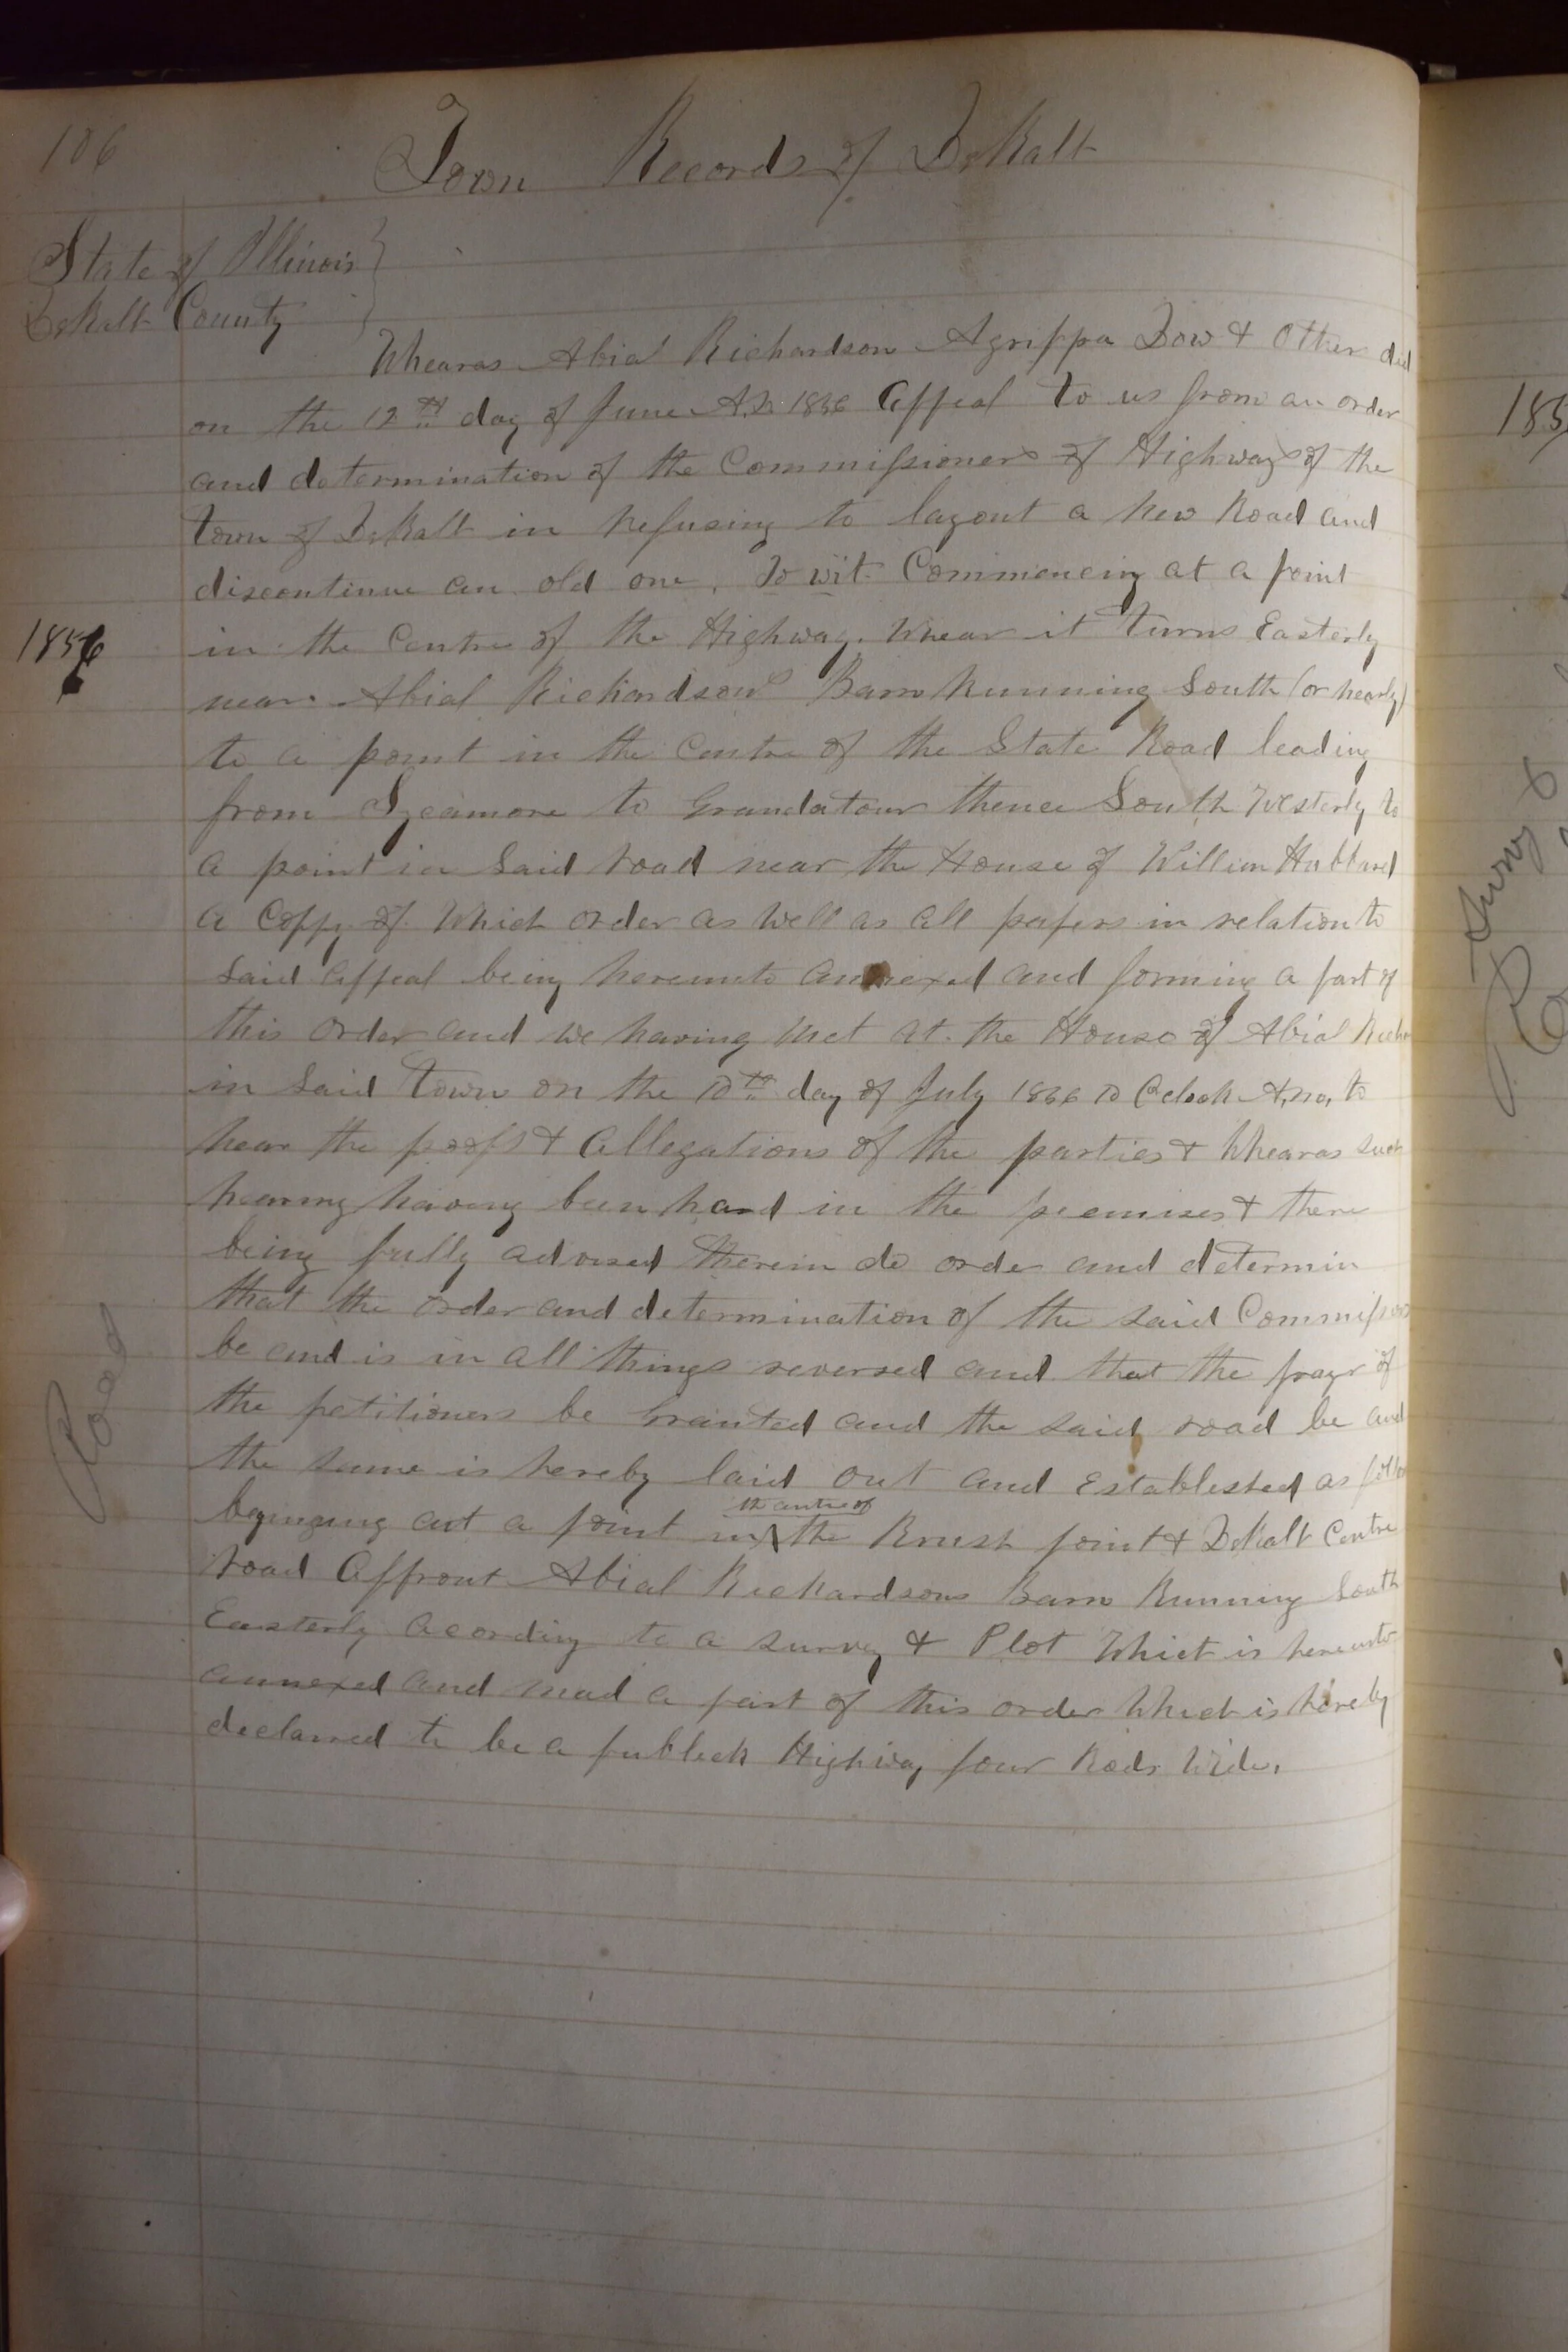 106
Town Records of DeKalb
State of Illinois
DeKalb County
Whearas Abial Richardson Agrippa Dow & Other did
on the 12th day of June A.D. 1856 Appeal to us from an order
and determination of the Commissioners of Highways of the
town of DeKalb in Refusing to layout a New Road and
discontinue an old one. To wit. Commencing at a point
1856
in the Centre of the Highway. Whear it turns Easterly
near Abial Richardsons Barn Running South (or nearly)
to a point in the Centre of the State Road leading
from Sycamore to Grandatour thence South Westerly to
a point in Said road near the House of William Hubbard
a Coppy of Which order as Well as all papers in relation to
Said Appeal being hereunto annexed and forming a part of
this order and we having Met at the House of Abial Rich
in Said Town on the 10th day of July 1856 10 Oclock A,m, to
hear the proofs & Allegations of the parties & Whearas such
hearing having been hard in the premises & there
being fully advised therein do order and determin
that the order and determination of the said Commissioners
be and is in all things reversed and that the prayr of
the petitioners be Granted and the said road be and
the same is hereby laid out and Established as follo
Road
the centre of
begining at a point in the Brush point & DeKalb Centre
road Affront Abial Richardsons Barn Running South
Easterly acording to a survey & Plot Which is hereunto
annexed and mad a part of this order Which is hereby
declarred to be a publick Highway four Rods Wide.
185
Survey &